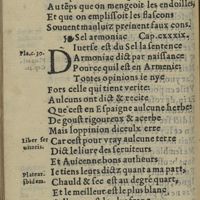 Au tẽps que on mengeoit les endoilles,
Et que on emplissoit les flascons
Souuent mauluiz preinent faux cons.
Sel armoniac Cap. cxxxix.
Pla.c.30.
Diuerse est du Sel la sentence
Darmoniac dict par naissance
Pource quil est en Armenie:
Toutes opinions ie nye
Fors celle qui tient verité:
Aulcuns ont dict & recité
Que c'est en Espaigne aulcune herbe
De goust rigoureux & acerbe
Mais l'oppinion dicculx erre
Liber ser
uitoris.
Car c'est pour vray aulcune terre
Dict le liure des seruiteurs
Et Auicenne bons autheurs
Platear.
ibidem.
Ie tiens leurs dictz quant a ma part,
Chauld & sec est au degré quart,
Et le meilleur est le plus blanc